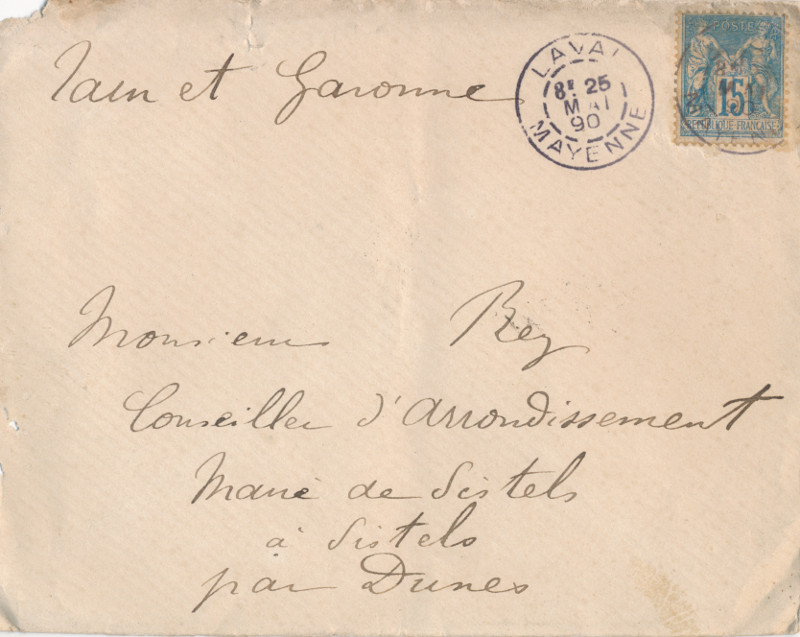 Tarn et Garonne
LAVAL
8E 25
MAI
90
MAYENNE
POSTES
15
REPUBLIQUE FRANÇAISE
Monsieur Rey
Conseiller d'Arrondissement
Maire de Sistels
à Sistels
par Dunes